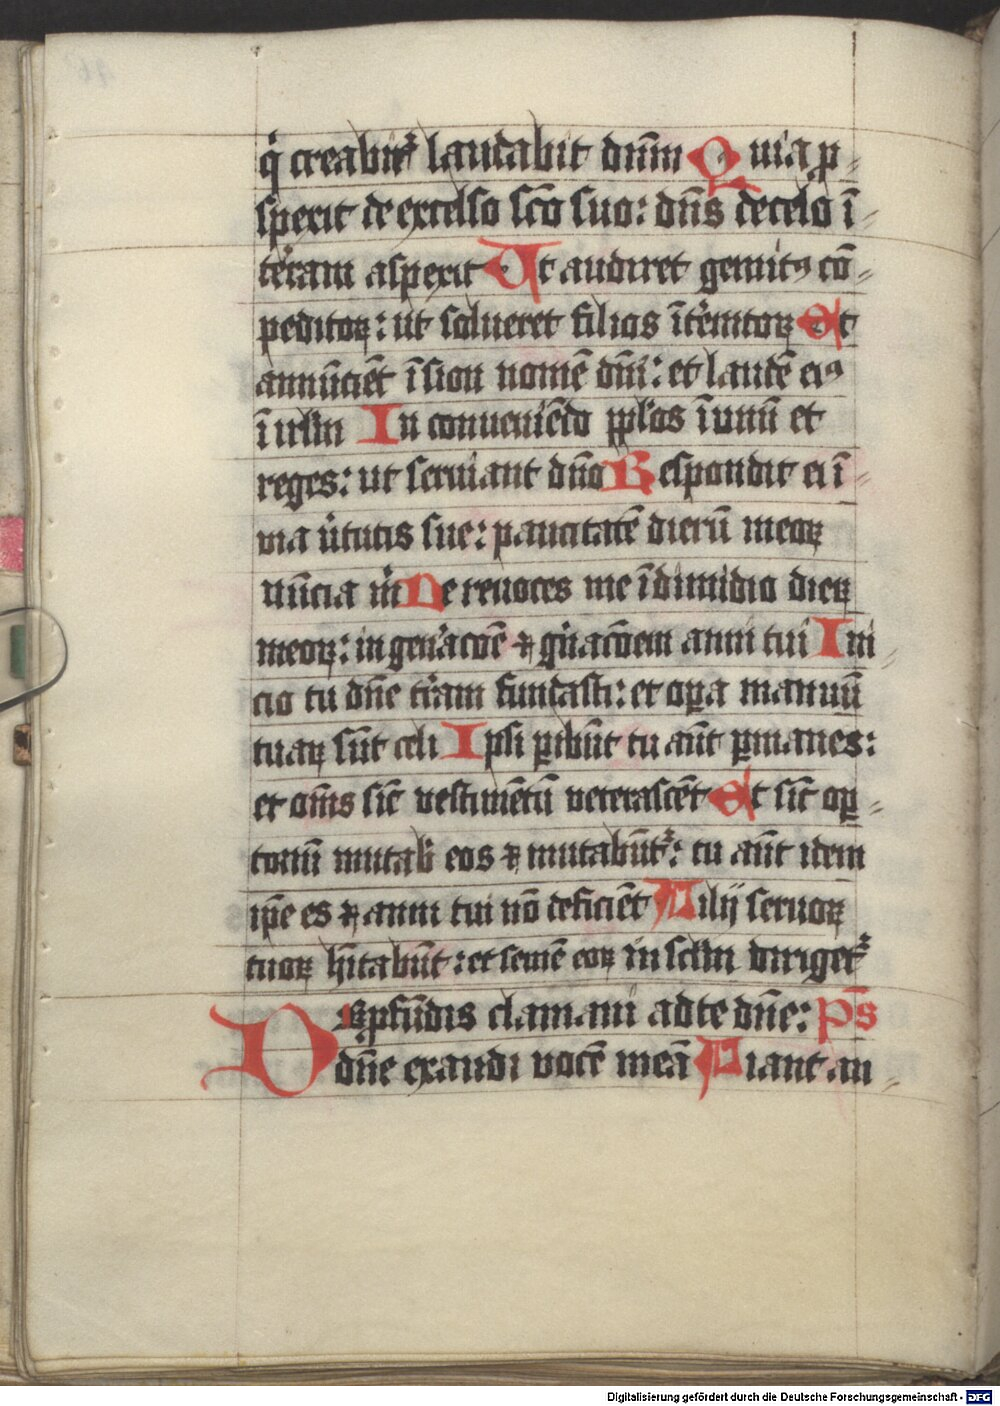 qͥ creabitᷣ laudabit dn̄m Quia p
spexit de excelso sc̄o suo: dn̄s de celo ī
terram aspexit Ut audiret gemitꝰ cō
peditoꝝ: ut solueret filios īt̾emtoꝝ Et
annūciēt ī sion nomē dn̄i: et laudē eiꝰ
ī irl̄m In conueniēdo pp̄los ī unū et
reges: ut seruiant dn̄o Respondit ei ī
uia ũtutis sue: paucitatē dierū meoꝝ
nūcia mͥ Ne reuoces me ī dimidio dieꝝ
meoꝝ: in gen̾acōē ⁊ gn̾acōem anni tui Ini
cio tu dn̄e tr̄am fundasti: et oꝑa manuū
tuaꝝ sūt celi Ipsi ꝑibūt tu aūt ꝑmanes:
et om̄s sic̄ vestimētū veterascēt Et sic̄ oꝑ
toriū mutab̄ eos ⁊ mutabūtᷣ: tu aūt idem
ip̄e es ⁊ anni tui nō deficiēt Filij seruoꝝ
tuoꝝ hītabūt: et semē eoꝝ in sc̄lm dirigetᷣ
De ꝓfūdis clamaui ad te dn̄e: Ps̄
dn̄e exaudi vocē meā Fiant au
Digitalisierung gefördert durch die Deutsche Forschungsgemeinschaft - DFG